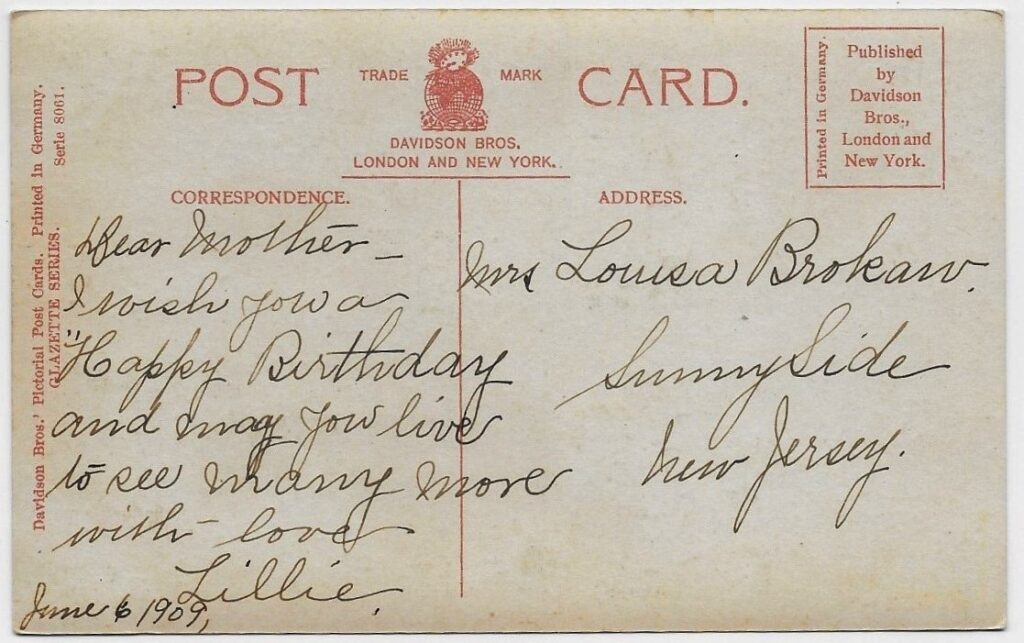 POST CARD.
TRADE MARK
DAVIDSON BROS.
LONDON AND NEW YORK.
Printed in Germany.
Published
by
Davidson
Bros.,
London and
New York.
Davidson Bros.' Pictorial Post Cards. Printed in Germany.
GLAZETTE SERIES. Serie 8061.
CORRESPONDENCE.
Dear Mother —
I wish you a
"Happy Birthday
and may you live
to see many more
with love
Lillie.
June 6 1909,
ADDRESS.
Mrs Louisa Brokaw.
Sunny Side
New Jersey.